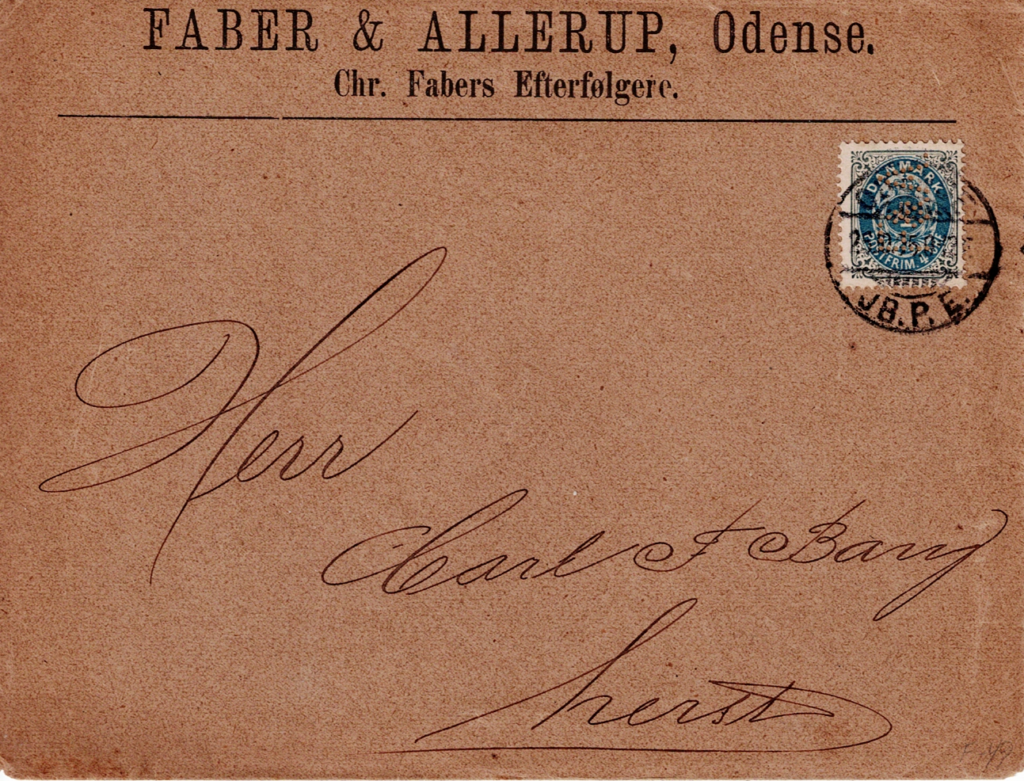 FABER & ALLERUP, Odense.
Chr. Fabers Efterfølgere.
DANMARK
POSTFRIM 4
JB.P.E.
Herr
Carl F Bang
herst